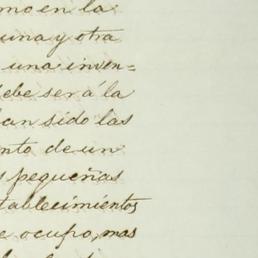 mo en la
una y otra
una inven=
debe ser á la
han sido las
nto de un
s pequeñas
tablecimientos
e ocupo, mas